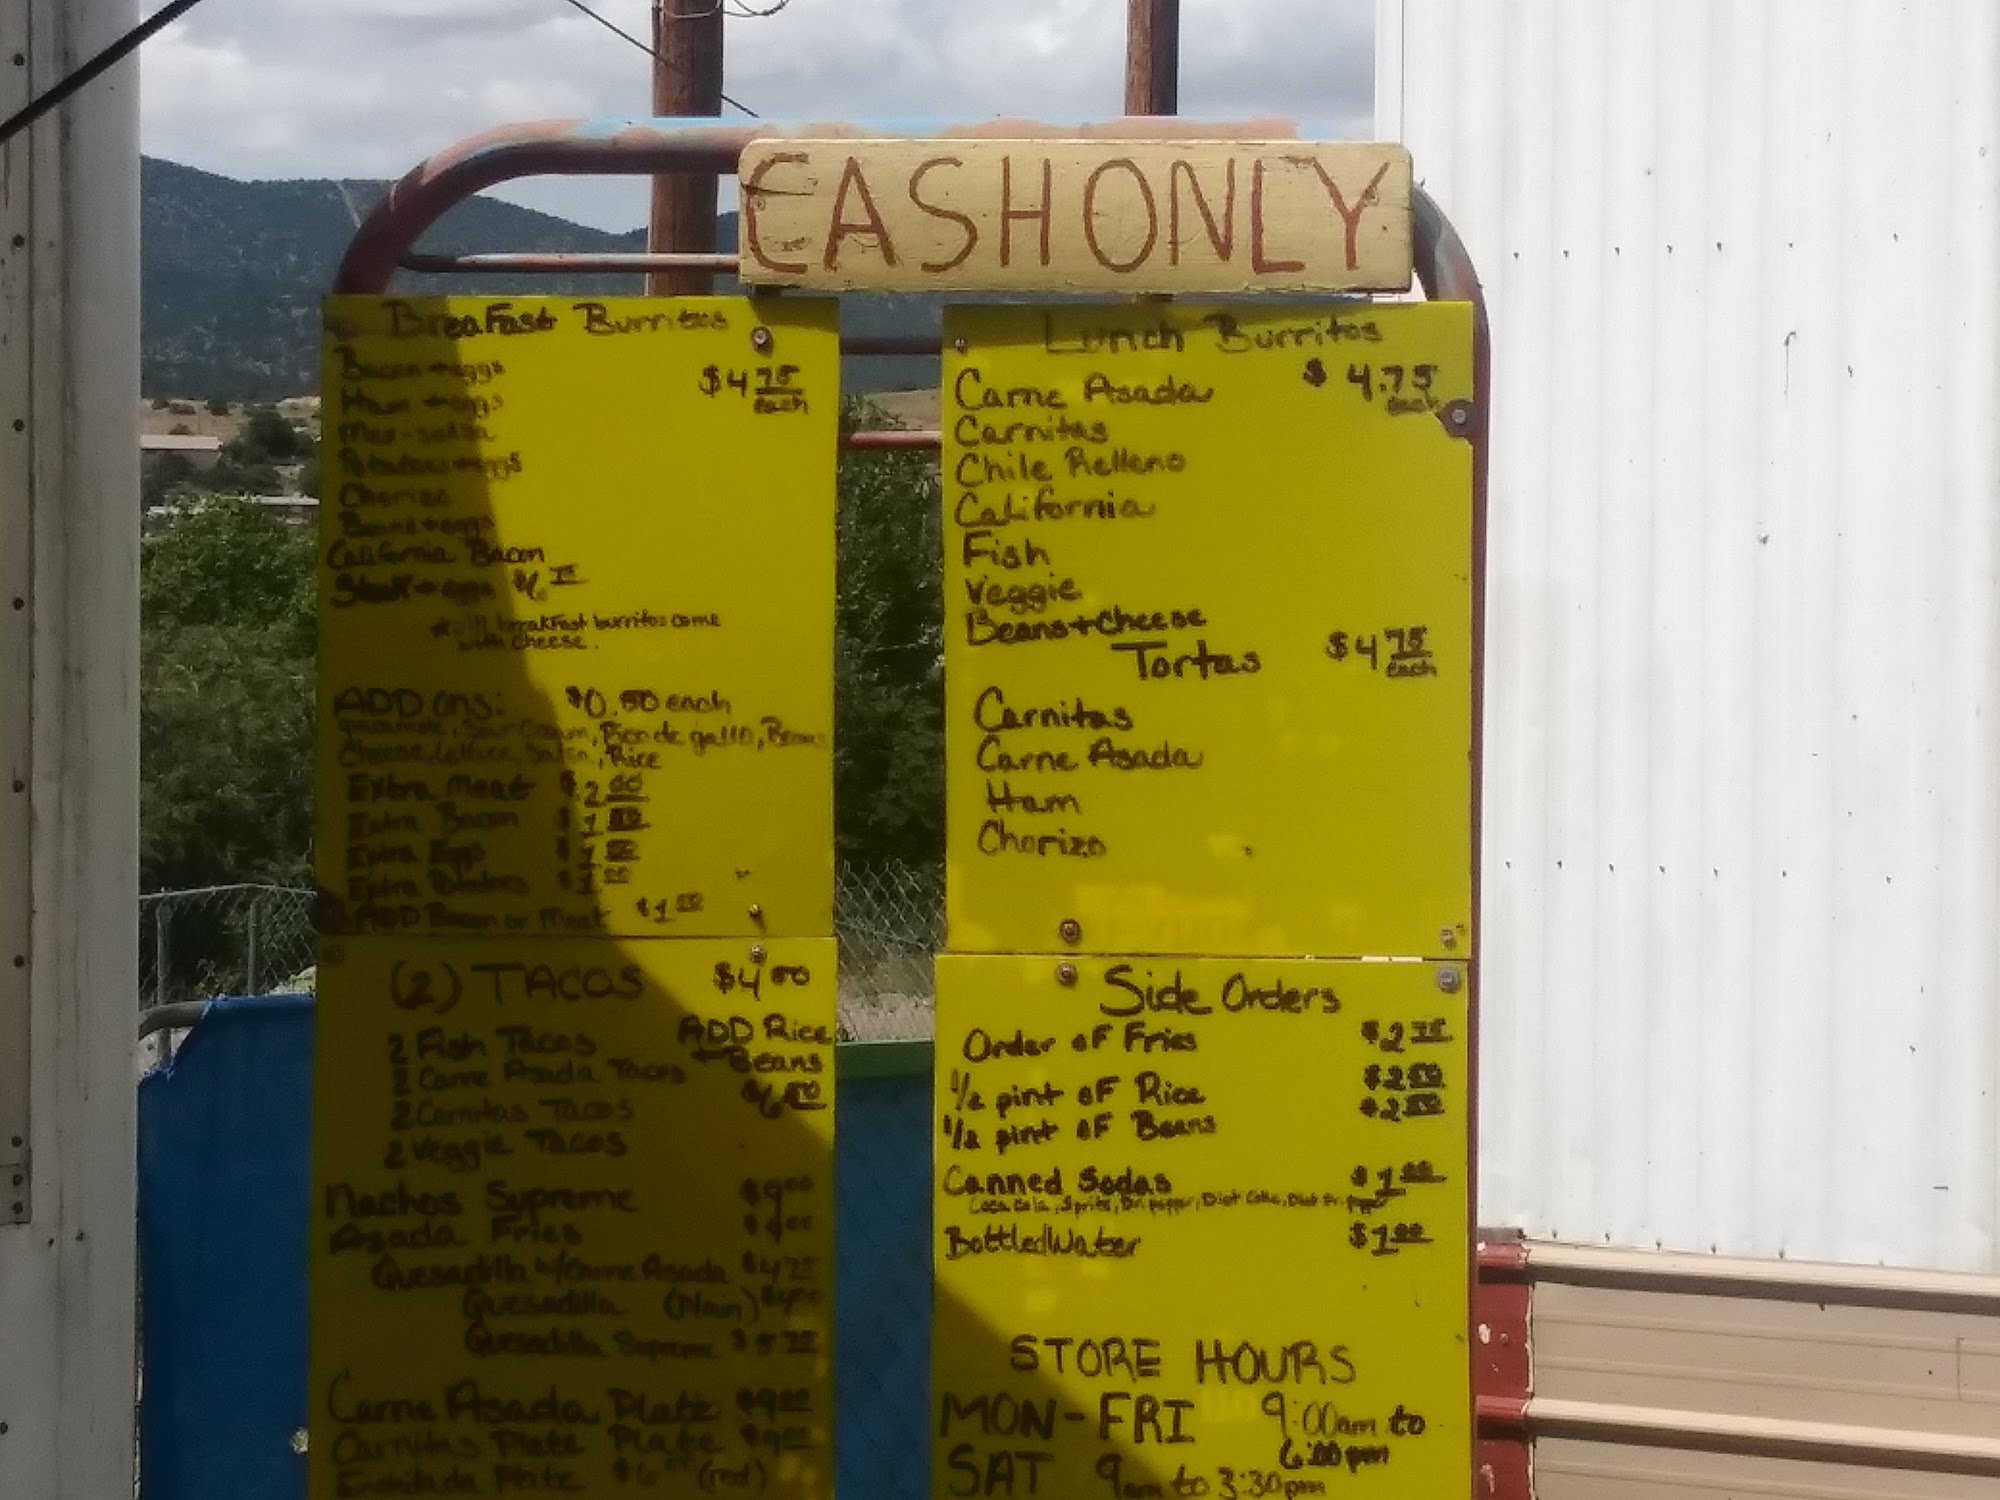 CASH ONLY
BreaFast Burritos
Bacon + eggs
$4.75 each
Ham + eggs
Potatoes + eggs
Chorizo
Beans + eggs
California Bacon
Steak + eggs
* All breakfast burritos come
with cheese.
ADD ons: $0.50 each
Sour Cream, Pico de gallo, Beans
Cheese, Lettuce, Rice
Extra Meat $2.00
Extra Bacon
Extra Eggs
Extra Potatoes
ADD Bacon or Meat $1.00
(2) TACOS $4.00
2 Fish Tacos
ADD Rice
+ Beans
2 Carne Asada Tacos
2 Carnitas Tacos
2 Veggie Tacos
Nachos Supreme $9.00
Asada Fries
Quesadilla w/Carne Asada
Quesadilla (Plain)
Quesadilla Supreme
Carne Asada Plate $9.00
Carnitas Plate Plate $9.00
Plate (red)
Lunch Burritos
$4.75
each
Carne Asada
Carnitas
Chile Relleno
California
Fish
Veggie
Beans + Cheese
Tortas $4.75 each
Carnitas
Carne Asada
Ham
Chorizo
Side Orders
Order oF Fries $2.75
1/2 pint oF Rice
1/2 pint oF Beans
Canned Sodas $1.00
Coca Cola, Sprite, Dr. pepper, Diet Coke, Diet Dr. pepper
Bottled Water $1.00
STORE HOURS
MON-FRI 9:00am to
6:00pm
SAT 9am to 3:30pm